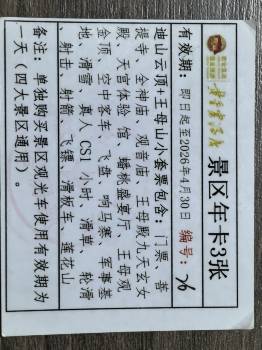 景区年卡3张
有效期：即日起至2026年4月30日 编号：
迪山云顶+王母山小套票包含：门票、菩
提寺、全神庙、观音庙、王母殿九天玄女
殿、天宫体验馆、蟠桃盛宴厅、王母观
金顶、空中客车、飞盘、哨马寨、军事基
地、滑雪、真人CS1小时、滑草、轮滑
、射击、射箭、飞镖、滑板车、莲花山
备注：单独购买景区观光车使用有效期为
一天（四大景区通用）。